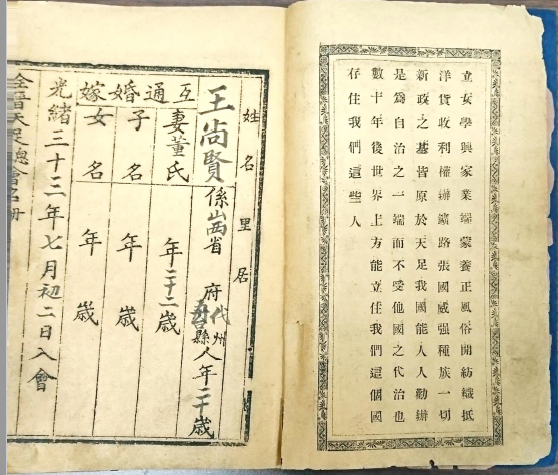 立女學興家業端蒙養正風俗開紡織抵
洋貨收利權辦鑛路張國威强種族一切
新政之基皆原於天足我國能人人勸辦
是爲自治之一端而不受他國之代治也
數十年後世界上方能立住我們這個國
存住我們這些人
姓名 里居
王尚賢係山西省 府代州 縣人年二十歲
互通婚嫁
妻董氏 年二十二歲
子名 年 歲
女名 年 歲
光緒三十三年七月初二日入會
全晉天足總會名册